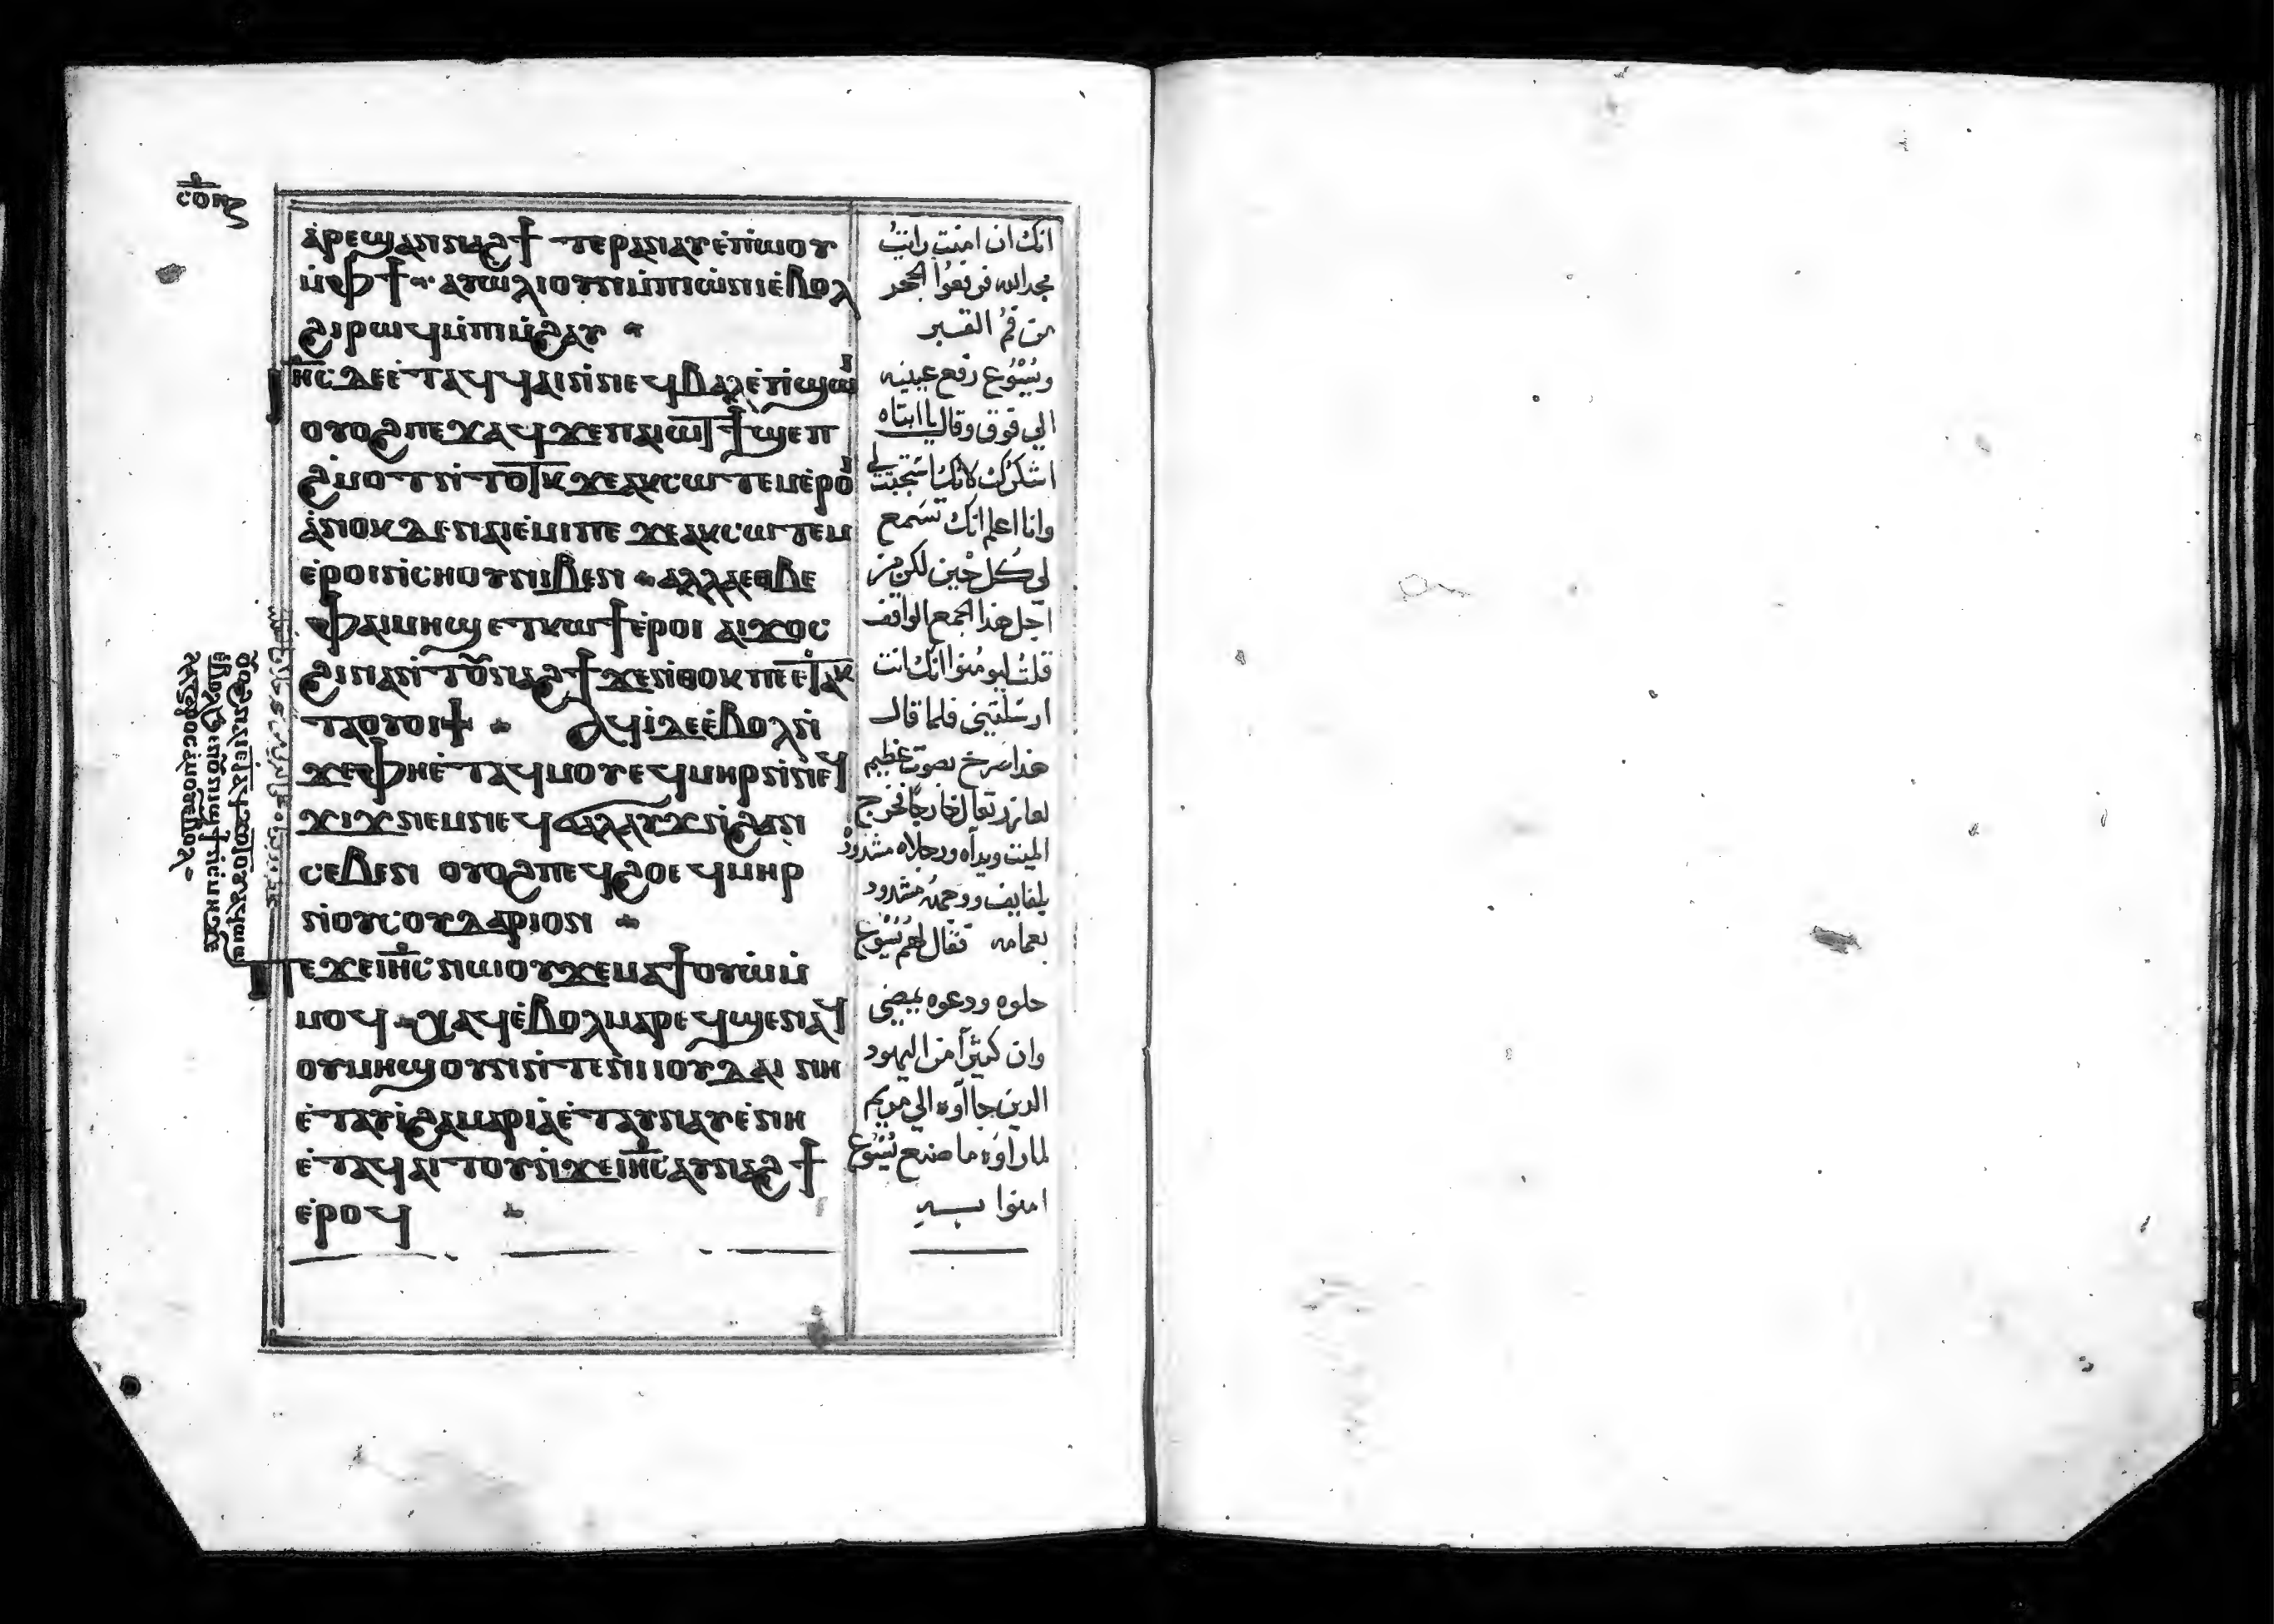 ⲁⲣⲉϣⲁⲛⲛⲁϩϯ ⲧⲉⲣⲁⲛⲁⲩⲉⲡⲱⲟⲩ
ⲙⲫϯ ⲁⲩⲱⲗⲓ ⲟⲩⲛ ⲙⲡⲓⲱⲛⲓ ⲉⲃⲟⲗ
ϩⲓⲣⲱϥ ⲙⲡⲓⲙϩⲁⲩ
ⲓⲏⲥ ⲇⲉ ⲉⲧⲁϥϥⲁⲓ ⲛⲛⲉϥⲃⲁⲗ ⲉⲡϣⲱⲓ
ⲟⲩⲟϩ ⲡⲉϫⲁϥ ϫⲉ ⲡⲁⲓⲱⲧ ϯϣⲉⲡ
ϩⲙⲟⲧ ⲛⲧⲟⲧⲕ ϫⲉ ⲁⲕⲥⲱⲧⲉⲙ ⲉⲣⲟⲓ
ⲁⲛⲟⲕ ⲇⲉ ⲛⲁⲓⲉⲙⲓ ⲡⲉ ϫⲉ ⲁⲕⲥⲱⲧⲉⲙ
ⲉⲣⲟⲓ ⲛⲥⲏⲟⲩ ⲛⲓⲃⲉⲛ ⲁⲗⲗⲁ ⲉⲑⲃⲉ
ⲫⲁⲓⲙⲏϣ ⲉⲧⲕⲱϯ ⲉⲣⲟⲓ ⲁⲓϫⲟⲥ
ϩⲓⲛⲁ ⲛⲧⲟⲩⲛⲁϩϯ ϫⲉ ⲛⲑⲟⲕ ⲡⲉⲧⲁⲕ
ⲧⲁⲟⲩⲟⲓϯ ⲁϥⲓ ⲇⲉ ⲉⲃⲟⲗ ⲛ
ϫⲉ ⲫⲏ ⲉⲧⲁϥⲙⲟⲩ ⲉϥⲙⲏⲣ ⲛⲛⲉϥ
ϫⲓϫ ⲛⲉⲙ ⲛⲉϥϭⲁⲗⲁⲩϫ ⲛϩⲁⲛ
ⲥⲉⲃⲉⲛ ⲟⲩⲟϩ ⲡⲉϥϩⲟ ⲉϥⲙⲏⲣ
ⲛⲟⲩⲥⲟⲩⲇⲁⲣⲓⲟⲛ
ⲡⲉϫⲉ ⲓⲏⲥ ⲛⲱⲟⲩ ϫⲉ ⲙⲁϯⲟⲩⲱ ⲙ
ⲙⲟϥ ⲭⲁϥ ⲉⲃⲟⲗ ⲙⲁⲣⲉϥϣⲉⲛⲁϥ
ⲟⲩⲙⲏϣ ⲟⲩⲛ ⲛⲧⲉ ⲛⲓⲓⲟⲩⲇⲁⲓ ⲛⲏ
ⲉⲧⲁⲩⲓ ϩⲁ ⲙⲁⲣⲓⲁ ⲉⲧⲁⲩⲛⲁⲩ ⲉⲛⲏ
ⲉⲧⲁϥⲁⲓⲧⲟⲩ ⲛϫⲉ ⲓⲏⲥ ⲁⲩⲛⲁϩϯ
ⲉⲣⲟϥ
ⲟⲩⲟϩ ⲛⲁⲓ ⲉⲧⲁϥϫⲟⲧⲟⲩ ⲁϥⲱϣ
ⲉⲃⲟⲗ ϧⲉⲛ ⲟⲩⲛⲓϣϯ ⲛⲥⲙⲏ ϫⲉ
ⲗⲁⲍⲁⲣⲟⲥ ⲁⲙⲟⲩ ⲉⲃⲟⲗ
انك ان امنت رايت
مجد الله فرفعوا الحجر
من فم القبر
ويسوع رفع عينيه
الي فوق وقال يا ابتاه
اشكرك لانك استجبت لي
وانا اعلم انك تسمع
لي كل حين لكن من
اجل هذا الجمع الواقف
قلت ليومنوا انك انت
ارسلتني فلما قال
هذا صرخ بصوت عظيم
لعازر تعال خارجا فخرج
الميت ويداه ورجلاه مشدود
بلفايف ووجهه مشدود
بعمامه فقال لهم يسوع
حلوه ودعوه يمضي
وان كثيرا من اليهود
الدين جاآوه الي مريم
لما راوه ما صنع يسوع
امنوا به